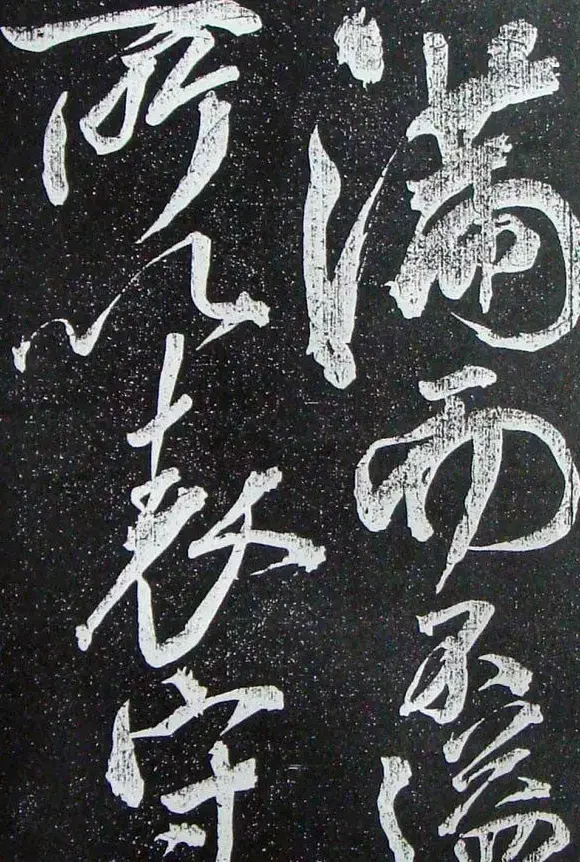 滿而不溢
所以長守